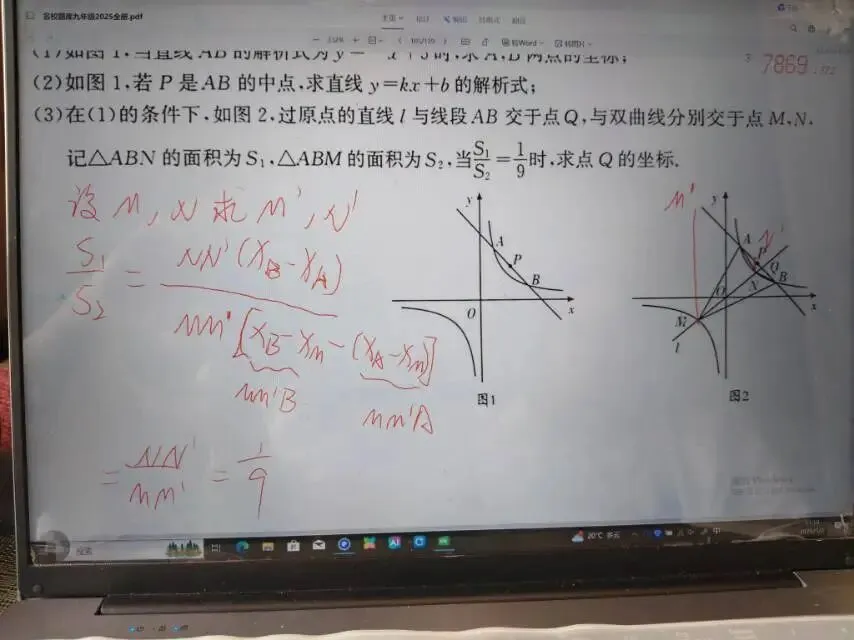 名校题库九年级2025全册.pdf
(2)如图1,若P是AB的中点,求直线y=kx+b的解析式;
(3)在(1)的条件下,如图2,过原点的直线l与线段AB交于点Q,与双曲线分别交于点M,N.
记△ABN的面积为S₁,△ABM的面积为S₂,当S₁/S₂=1/9时,求点Q的坐标.
7869
设M,N求M',N'
S₁/S₂=NN'(X_B-X_A)/MM'[X_B-X_m-(X_A-X_m)]
MM'B
MM'A
=NN'/MM'=1/9
y
A
P
B
O
x
图1
M'
y
A
P
N'
Q
B
O
N
x
M
l
图2
搜索
20°C 多云